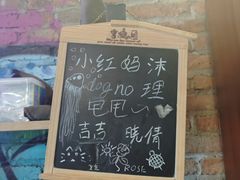 小红妈沫
dog no 理
电电心
吉吉 晓倩
ROSE